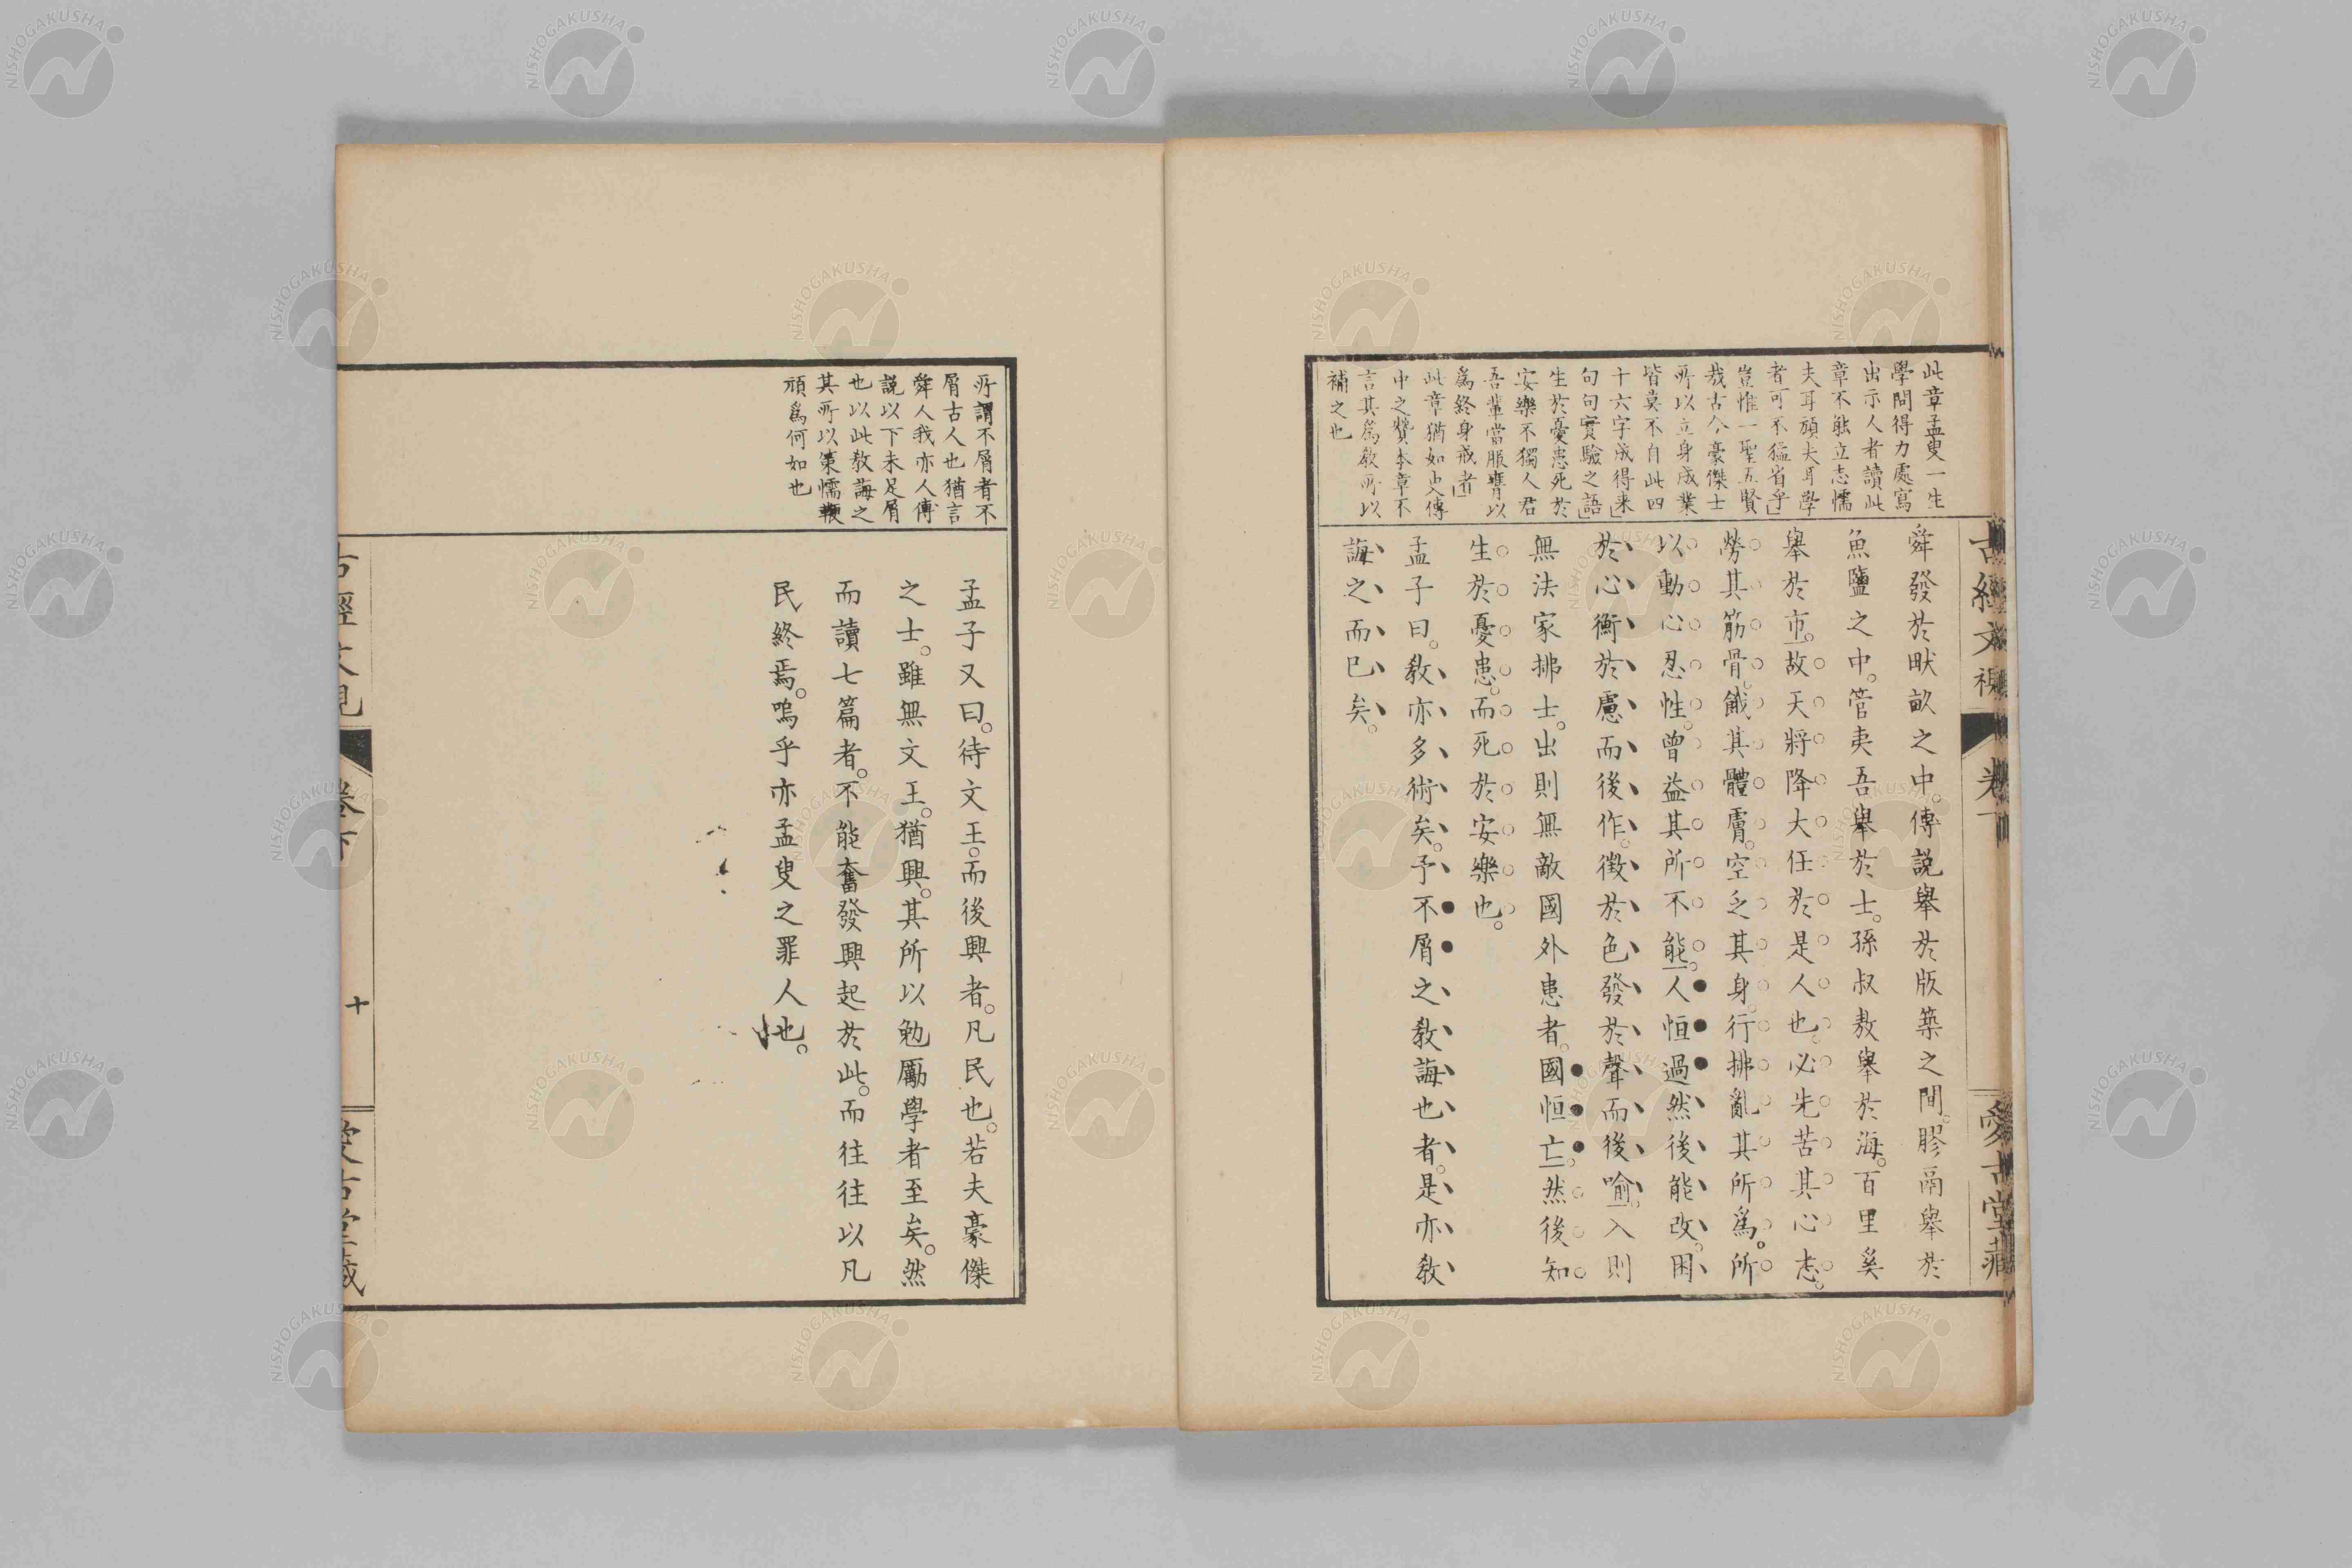 此章孟叟一生
學問得力處寫
出示人者讀此
章不能立志懦
夫耳頑夫耳學
者可不猛省乎」
豈惟一聖五賢
哉古今豪傑士
所以立身成業
皆莫不自此四
十六字成得来」
句句實驗之語」
生於憂患死於
安樂不獨人君
吾輩當服膺以
爲終身戒者」
此章猶如史傳
中之贊本章不
言其爲欲所以
補之也
舜發於畎畝之中。傅説舉於版築之間。膠鬲舉於
魚鹽之中。管夷吾舉於士。孫叔敖舉於海。百里奚
舉於市。故天將降大任於是人也。必先苦其心志。
勞其筋骨。餓其體膚。空乏其身。行拂亂其所爲。所
以動心忍性。曾益其所不能。人恒過然後能改。困
於心衡於慮而後作。徵於色發於聲而後喻。入則
無法家拂士。出則無敵國外患者。國恒亡。然後知
生於憂患。而死於安樂也。
孟子曰。敎亦多術矣。予不屑之敎誨也者。是亦敎
誨之而已矣。
愛古堂藏
所謂不屑者不
屑古人也猶言
舜人我亦人傅
説以下未足屑
也以此敎誨之
其所以策懦鞭
頑爲何如也
孟子又曰。待文王。而後興者。凡民也。若夫豪傑
之士。雖無文王。猶興。其所以勉厲學者至矣。然
而讀七篇者。不能奮發興起於此。而往往以凡
民終焉。嗚乎亦孟叟之罪人也。
卷下
十
NISHOGAKUSHA